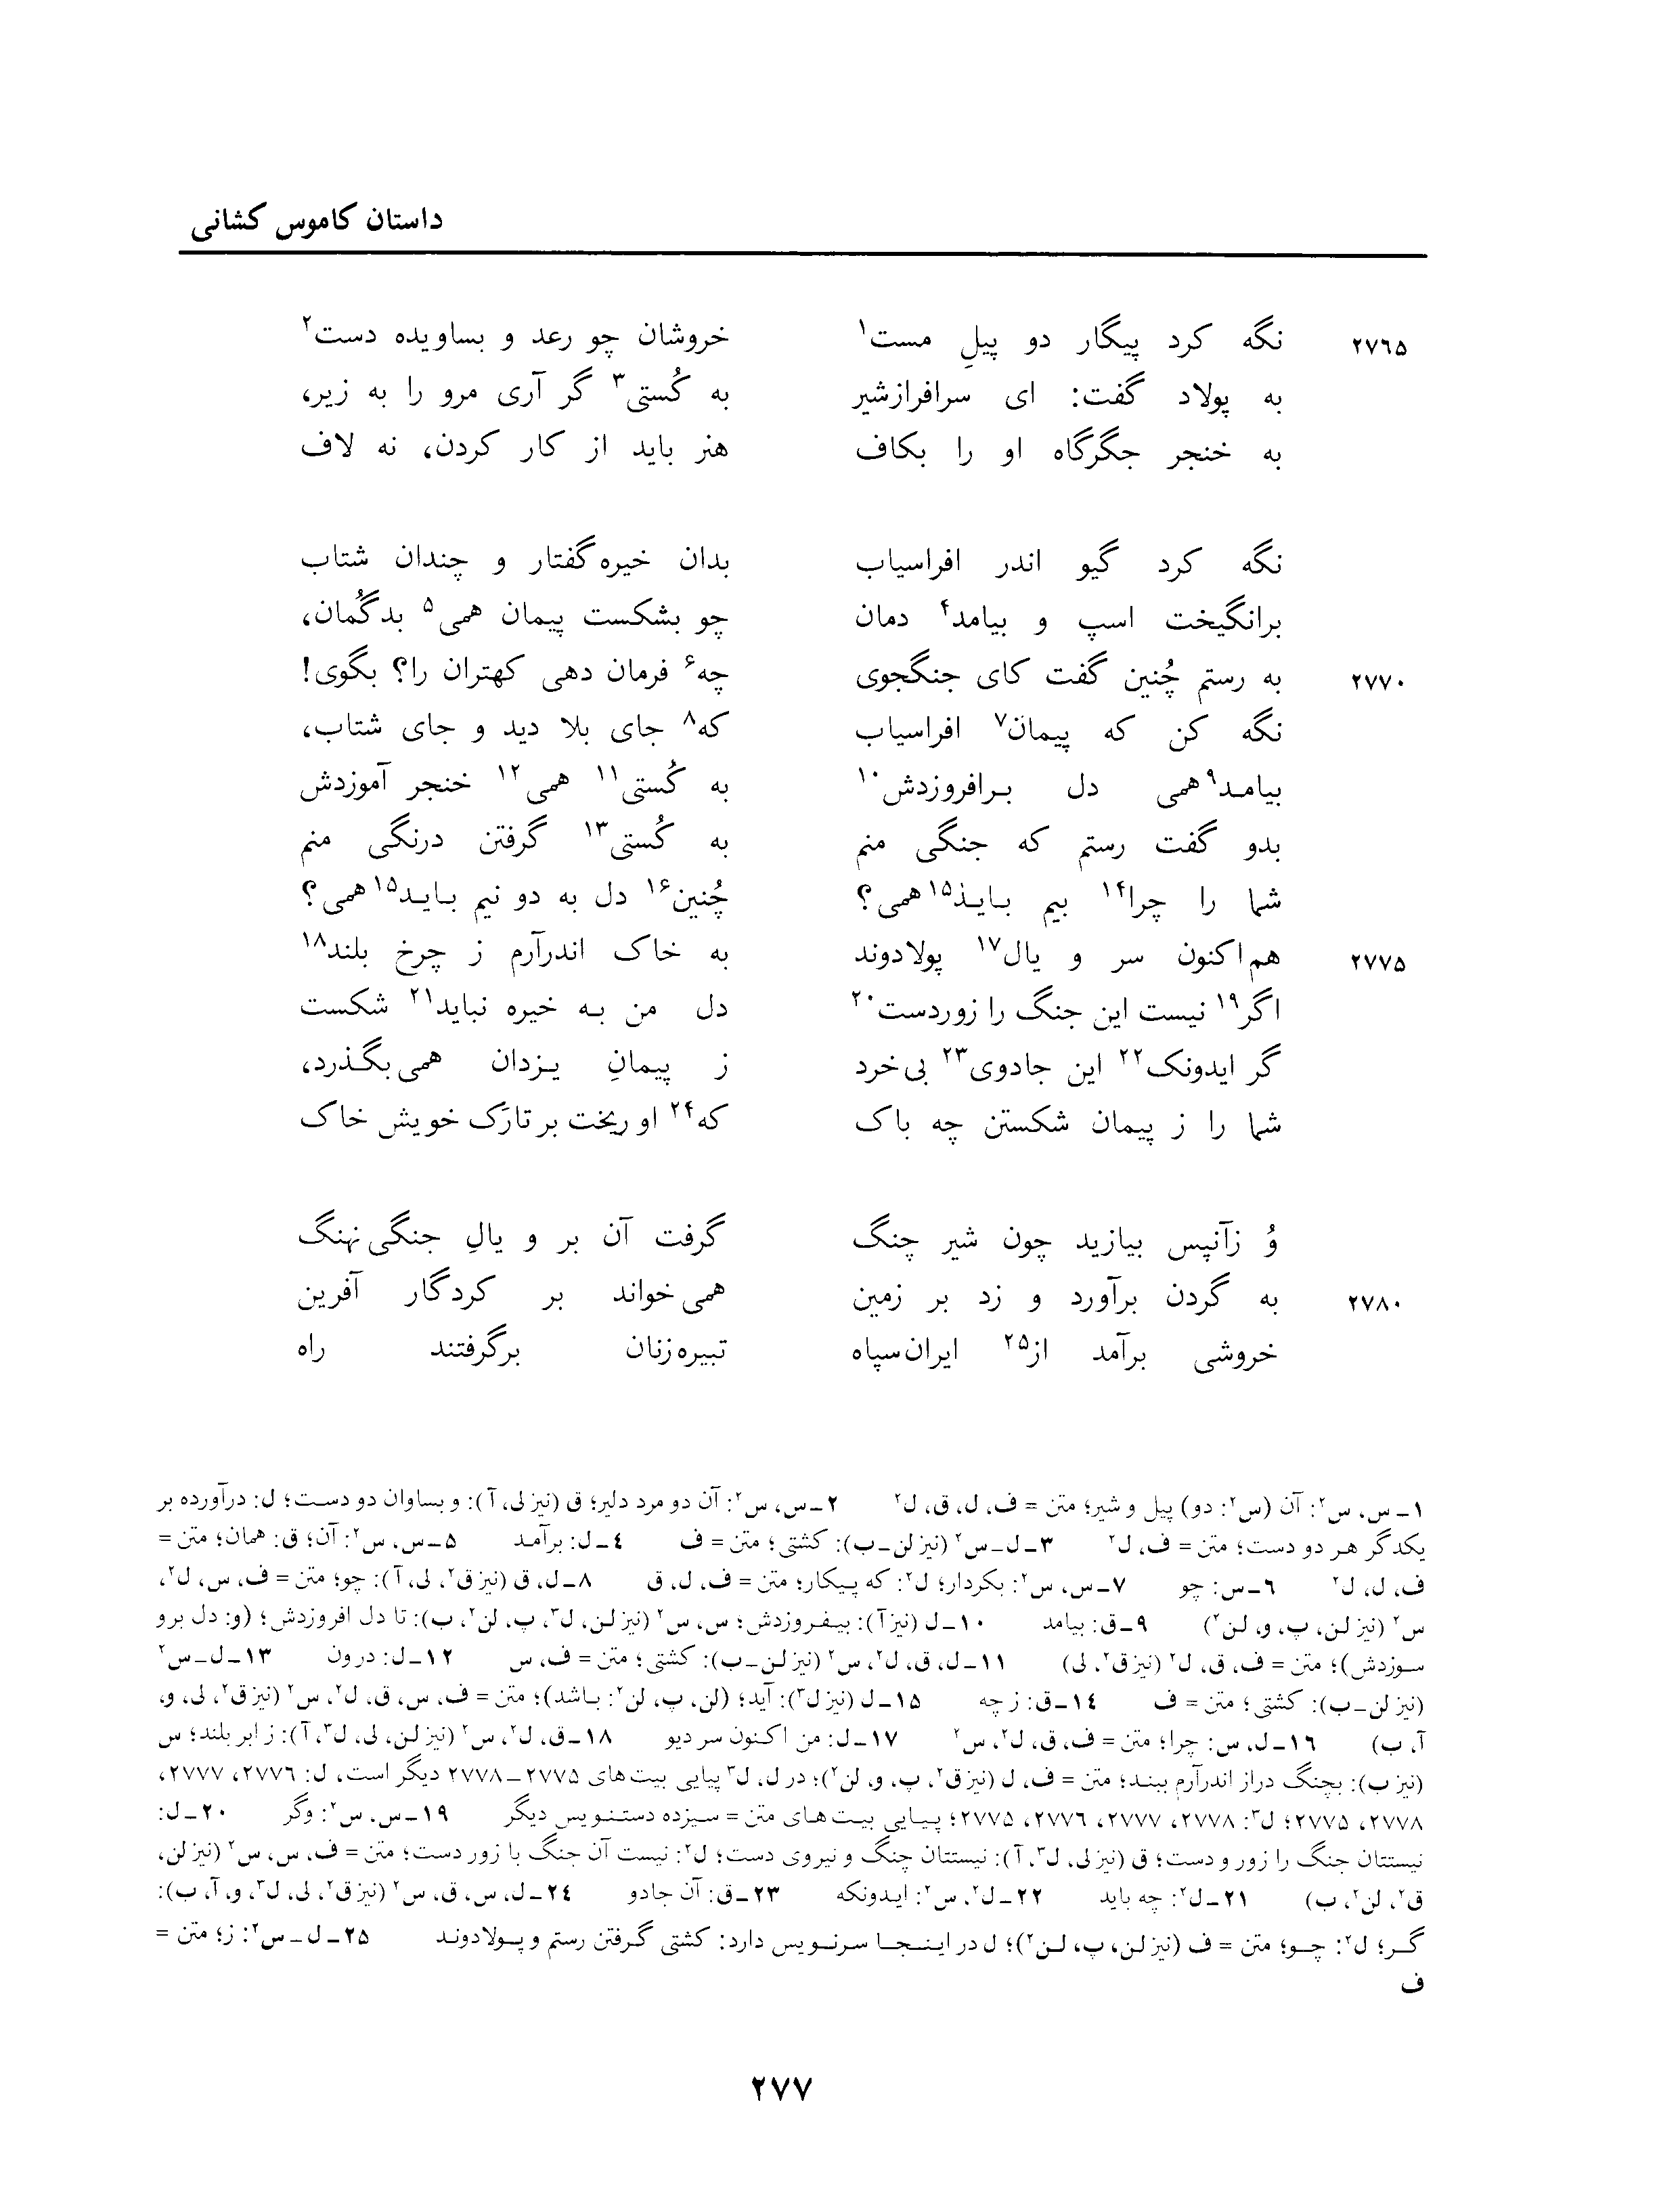 داستان کاموس کشانی
۲۷۶۵ نگه کرد پیگار دو پیلِ مست۱ خروشان چو رعد و بساویده دست۲
به پولاد گفت: ای سرافرازشیر به کُستی۳ گر آری مرو را به زیر،
به خنجر جگرگاه او را بکاف هنر باید از کار کردن، نه لاف
نگه کرد گیو اندر افراسیاب بدان خیره‌گفتار و چندان شتاب
برانگیخت اسپ و بیامد۴ دمان چو بشکست پیمان همی۵ بدگُمان،
۲۷۷۰ به رستم چُنین گفت کای جنگجوی چه۶ فرمان دهی کهتران را؟ بگوی!
نگه کن که پیمان۷ افراسیاب که۸ جای بلا دید و جای شتاب،
بیامد۹ همی دل برافروزدش۱۰ به کُستی۱۱ همی۱۲ خنجر آموزدش
بدو گفت رستم که جنگی منم به کُستی۱۳ گرفتن درنگی منم
شما را چرا۱۴ بیم بایذ۱۵ همی؟ چُنین۱۶ دل به دو نیم باید۱۵ همی؟
۲۷۷۵ هم‌اکنون سر و یال۱۷ پولادوند به خاک اندرآرم ز چرخ بلند۱۸
اگر۱۹ نیست این جنگ را زوردست۲۰ دل من به خیره نباید۲۱ شکست
گر ایدونک۲۲ این جادوی۲۳ بی‌خرد ز پیمانِ یزدان همی‌بگذرد،
شما را ز پیمان شکستن چه باک که۲۴ او ریخت بر تارَک خویش خاک
وُ زآنپس بیازید چون شیر چنگ گرفت آن بر و یالِ جنگی‌نهنگ
۲۷۸۰ به گردن برآورد و زد بر زمین همی‌خواند بر کردگار آفرین
خروشی برآمد از۲۵ ایران‌سپاه تبیره‌زنان برگرفتند راه
۱ـ س، س۲: آن (س۲: دو) پیل و شیر؛ متن = ف، ل، ق، ل۲ ۲ـ س، س۲: آن دو مرد دلیر؛ ق (نیز لی، آ): و بساوان دو دست؛ ل: درآورده بر
یکدگر هر دو دست؛ متن = ف، ل۲ ۳ـ ل ـ س۲ (نیز لن ـ ب): کشتی؛ متن = ف ۴ـ ل: برآمد ۵ـ س، س۲: آن؛ ق: همان؛ متن =
ف، ل، ل۲ ۶ـ س: چو ۷ـ س، س۲: بکردار؛ ل۲: که پیکار؛ متن = ف، ل، ق ۸ـ ل، ق (نیز ق۲، لی، آ): چو؛ متن = ف، س، ل۲،
س۲ (نیز لن، پ، و، لن۲) ۹ـ ق: بیامد ۱۰ـ ل (نیز آ): بیفروزدش؛ س، س۲ (نیز لن، ل۳، پ، لن۲، ب): تا دل افروزدش؛ (و: دل برو
سوزدش)؛ متن = ف، ق، ل۲ (نیز ق۲، لی) ۱۱ـ ل، ق، ل۲، س۲ (نیز لن ـ ب): کشتی؛ متن = ف، س ۱۲ـ ل: درون ۱۳ـ ل ـ س۲
(نیز لن ـ ب): کشتی؛ متن = ف ۱۴ـ ق: ز چه ۱۵ـ ل (نیز ل۳): آید؛ (لن، پ، لن۲: باشد)؛ متن = ف، س، ق، ل۲، س۲ (نیز ق۲، لی، و،
آ، ب) ۱۶ـ ل، س: چرا؛ متن = ف، ق، ل۲، س۲ ۱۷ـ ل: من اکنون سر دیو ۱۸ـ ق، ل۲، س۲ (نیز لن، لی، ل۳، آ): ز ابر بلند؛ س
(نیز ب): بچنگ دراز اندرآرم ببند؛ متن = ف، ل (نیز ق۲، پ، و، لن۲)؛ در ل، ل۳ پیایی بیت‌های ۲۷۷۵ـ۲۷۷۸ دیگر است، ل: ۲۷۷۶، ۲۷۷۷،
۲۷۷۸، ۲۷۷۵؛ ل۳: ۲۷۷۸، ۲۷۷۷، ۲۷۷۶، ۲۷۷۵؛ پیایی بیت‌های متن = سیزده دستنویس دیگر ۱۹ـ س، س۲: وگر ۲۰ـ ل:
نیستتان جنگ را زور و دست؛ ق (نیز لی، ل۳، آ): نیستتان چنگ و نیروی دست؛ ل۲: نیست آن جنگ با زور دست؛ متن = ف، س، س۲ (نیز لن،
ق۲، لن۲، ب) ۲۱ـ ل۲: چه باید ۲۲ـ ل۲، س۲: ایدونکه ۲۳ـ ق: آن جادو ۲۴ـ ل، س، ق، س۲ (نیز ق۲، لی، ل۳، و، آ، ب):
گر؛ ل۲: چو؛ متن = ف (نیز لن، پ، لن۲)؛ ل در اینجا سرنویس دارد: کشتی گرفتن رستم و پولادوند ۲۵ـ ل ـ س۲: ز؛ متن =
ف
۲۷۷